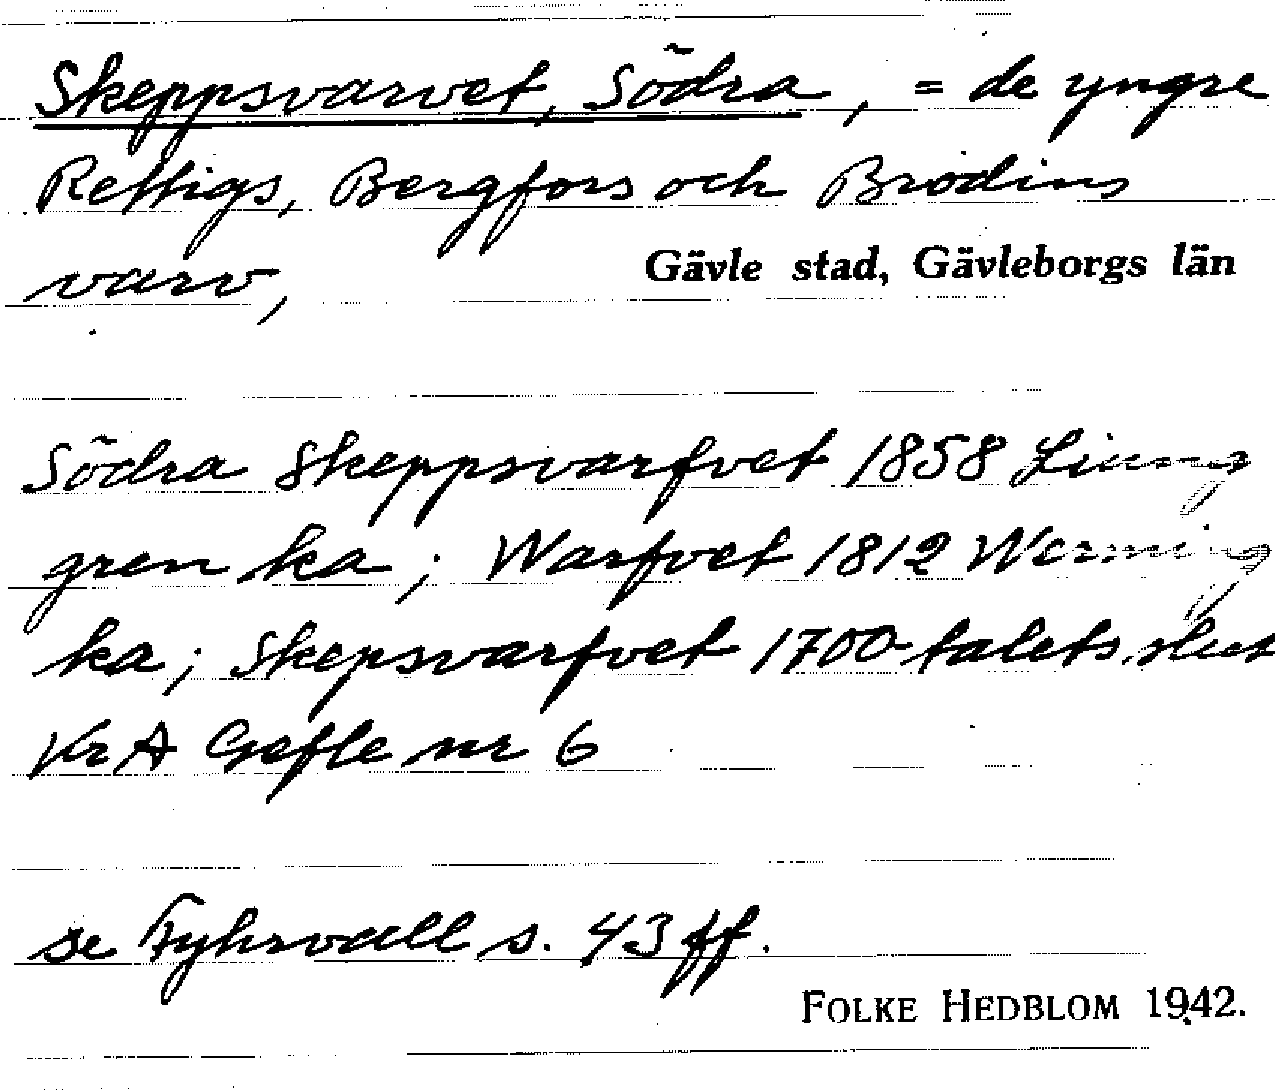 Skeppsvarvet, Södra, = de yngre
Rettigs, Bergfors och Brodins
varv,
Gävle stad, Gävleborgs län
Södra Skeppsvarfvet 1858 Ljung
gren ka; Warfvet 1812 Werming
ka; Skepsvarfvet 1700-talets slut
KrA Gefle nr 6
se Fyhrvall s. 43 ff.
FOLKE HEDBLOM 1942.